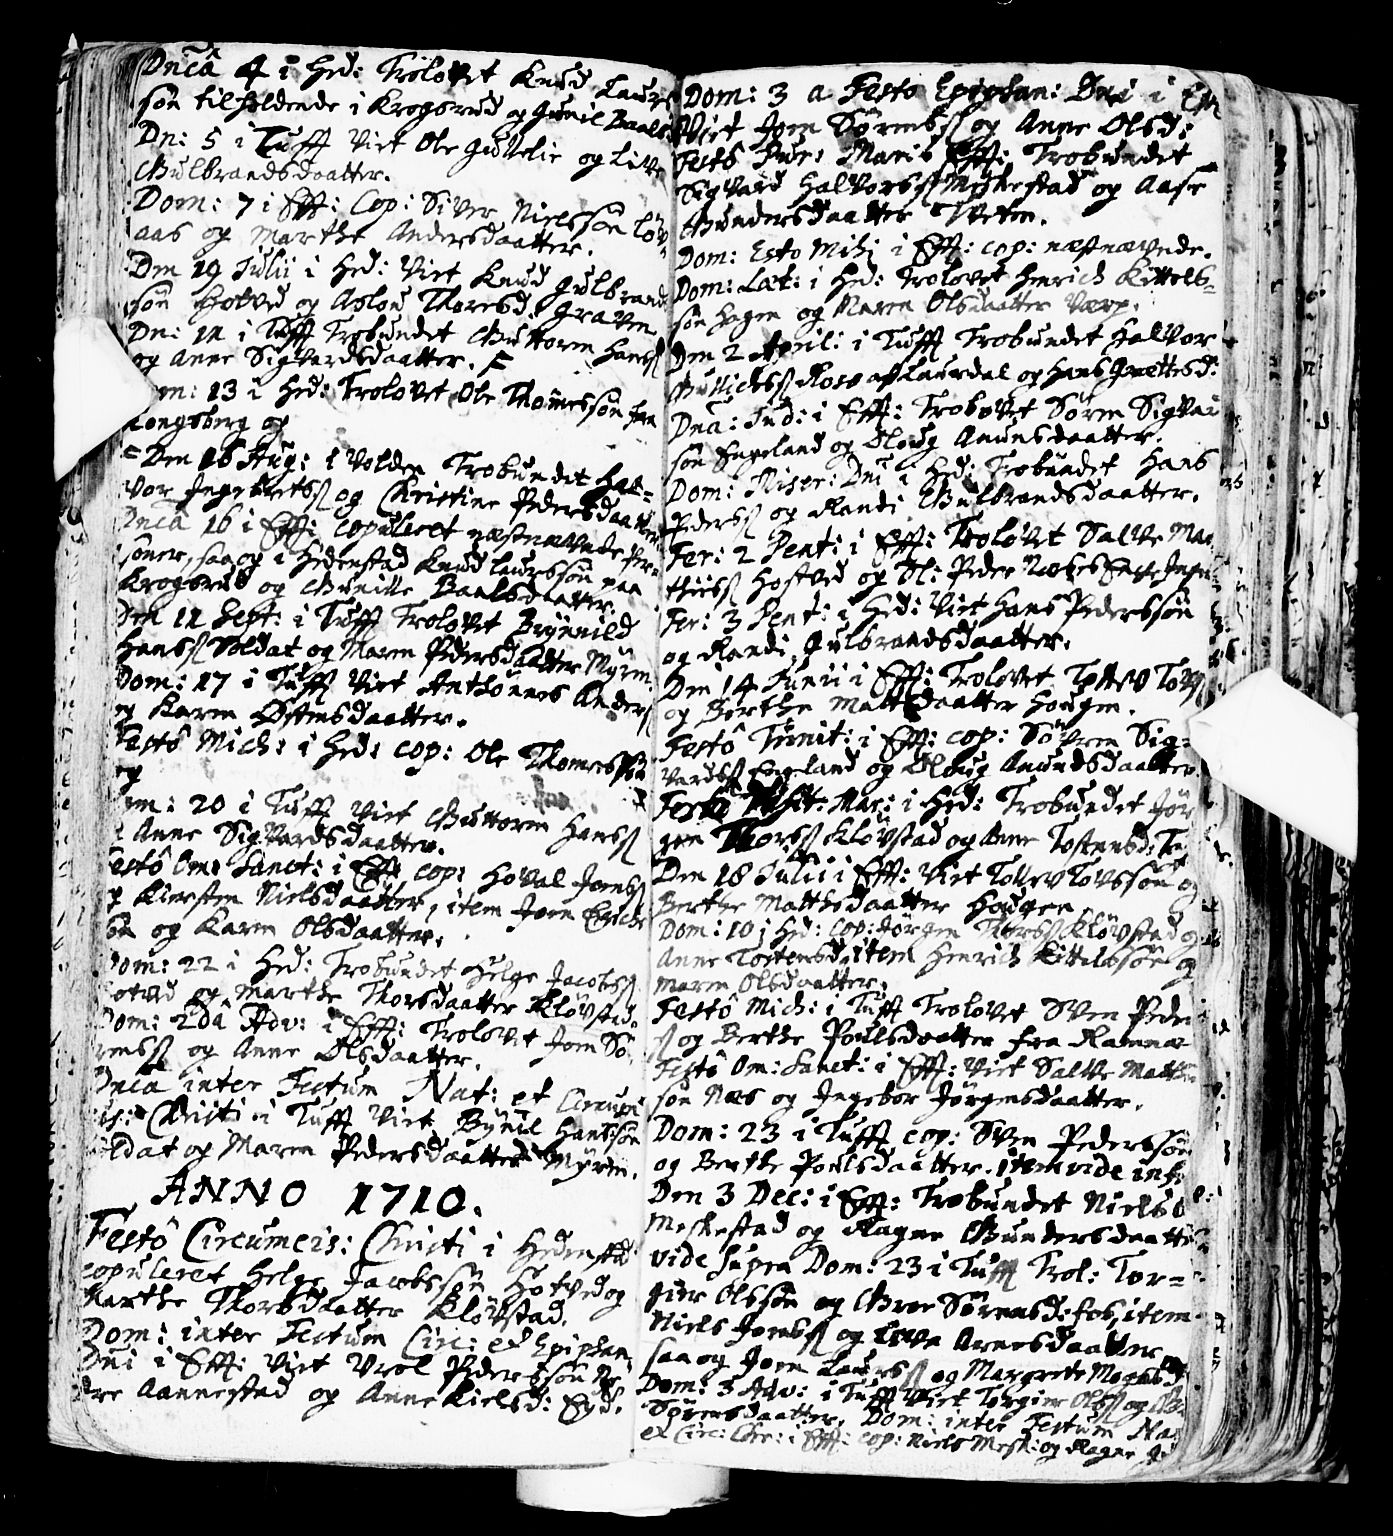 Dnicâ 4 i Hed: Trolovet Knud Laurs
søn tilholdende i Krogsrud og Gunil Baals
Dn: 5 i Tufft Viet Ole og Live
Gulbrandsdaatter.
Dom: 7 i Efft: Cop: Siver Nielssøn Løv-
aas og Marthe Andersdaatter.
Den 19 Julii i Hed: Viet Knud Gulbrand
søn Hotved og Asloud Thoresd: Graven
Dn: 12 i Tufft Trobundet Guttorm Hanss
og Anne Sigvardsdaatter. F
Dom: 13 i Hed: Trolovet Ole Thomessøn fra
Kongsberg og
= Den 16 Aug: i Volden Trobundet Hal=
vor Ingebretss og Christine Pedersdaatter
Dnicâ 16 i Efft: Copuleret næstnævnde Per-
soner, saa og i Hedenstad Knud Laurssøn paa
Krogsrud og Gunille Baalsdaatter.
Den 12 Sept: i Tufft Trolovet Brynnild
Hanss Soldat og Maren Pedersdaatter Myren.
Dom: 17 i Tufft Viet Anthonnes Anders
og Karen Østensdaatter.
Festô Mich: i Hed: cop: Ole Thomessøn
og
Dom: 20 i Tufft Viet Guttorm Hanss
og Anne Sigvardsdaatter.
Festô Om: Sanct: i Efft: cop: Hoval Joenss
og Kiersten Nielsdaatter, item Joen Erichs
søn og Karen Olsdaatter.
Dom: 22 i Hed: Trobundet Helge Jacobss
Hotved og Marthe Thorsdaatter Kløvstad.
Dom: 2dâ Adv: i Efft: Trolovet Joen Sø-
rensS og Anne Olsdaatter.
Dnica inter Festum Nat: et Circumci
sis: Christi i Tufft Viet Bynil Hanssøn
Soldat og Maren Pedersdaatter Myren.
ANNO 1710.
Festô Circumcis: Christi i Hedenstad
copuleret Helge Jacobssøn Hotved og
Marthe Thorsdaatter Kløvstad.
Dom: inter Festum Circ: et Epiphan:
Dni i Efft: Viet Vrol Pederssøn
Aannestad og Anne Kielsd: Eyd.
Dom: 3 a Festo Epiphan: Dni i Efft
Viet Joen Sørenss og Anne Olsd:
Festô Pur: Mariæ Efft: Trobundet
Sigvard Halvorss Meskestad og Aase
Gundersdaatter Tveten.
Dom: Esto Mihi i Efft: cop: næstnævnde.
Dom: Læt: i Hed: Trolovet Henrich Kittels-
søn Hagen og Maren Olsdaatter
Den 2 April: i Tufft Trobundet Halvor
af Laurdal og
Dnca: Jud: i Efft: Trolovet Søren Sigvar
søn Engeland og Oloug Amundsdaatter.
Dom: Miser: Dni i Hed: Trobundet Hans
Pederss og Randi Gulbrandsdaatter.
Fer: 2 Pent: i Efft: Trolovet Salve Mat
thiess Hoftved og
Fer: 3 Pent: i Hed: Viet Hans Pederssøn
og Randi Gulbrandsdaatter.
Den 14 Junii i Efft: Trolovet Tollev Tovss
og Berthe Mattsdaatter Hougen.
Festô Trinit: i Efft: cop: Søren Sig-
vardss Engeland og Oloug Amundsdaatter.
Festo Visit: Mar: i Hed: Trobundet Jør
gen Thorss Kløvstad og Anne Tostensd:
Den 18 Julii i Efft: Viet Tollev Tovssøn og
Berthe Matthsdaatter Hougen.
Dom: 10 i Hed: cop: Jørgen Thorss Kløvstad og
Anne Tostensd: item Henrich Kittilssøn og
Maren Olsdaatter.
Festô Mich: i Tufft Trolovet Sven Peder
ss og Berthe Poulsdaatter fra Ramnæ
Festô Om: Sanct: i Efft: Viet Salve Matthi
søn Næs og Ingebor Jørgensdaatter.
Dom: 23 i Tufft cop: Sven Pederssøn
og Berthe Poulsdaatter. item vide infr
Den 3 Dec: i Efft: Trobundet Niels
Meskestad og Ragne Gundersdaatter
vide supra Dom: 23 i Tufft Trol: Tor=
gier Olssøn og Sørensd: item
Niels Jonss og Live Arnesdaatter
saa og Joen Laurss og Margrete Mognsd
Dom: 3 Adv: i Tufft Viet Torgier Olss og
Sørensdaatter. Dom: inter Festum Na
et Circ: Chr: i Efft: cop: Niels Mesk: og Ragne